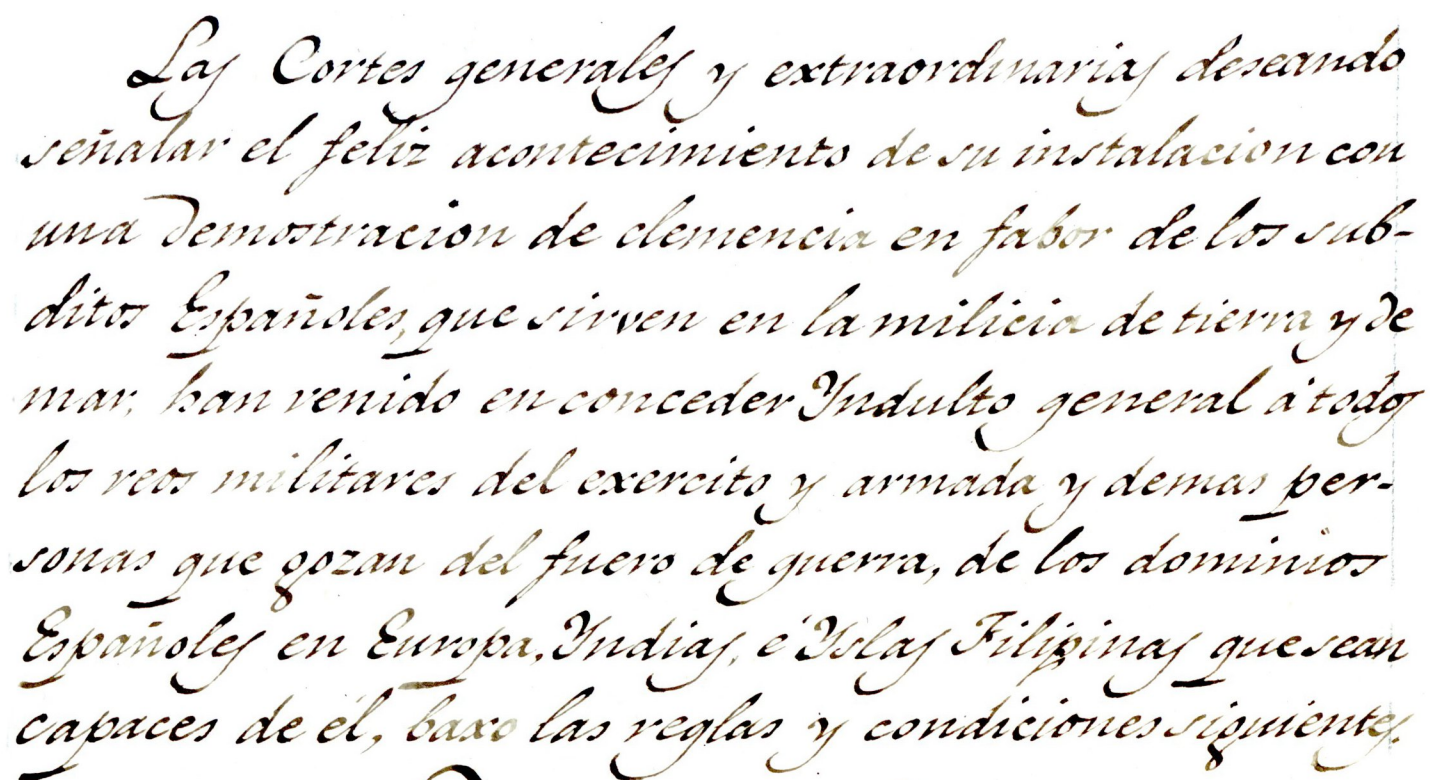 Las Cortes generales y extraordinarias deseando
señalar el feliz acontecimiento de su instalacion con
una demostracion de clemencia en fabor de los sub-
ditos Españoles, que sirven en la milicia de tierra y de
mar, han venido en conceder Yndulto general á todos
los reos militares del exercito y armada y demas per-
sonas que gozan del fuero de guerra, de los dominios
Españoles en Europa, Yndias, é Yslas Filipinas que sean
capaces de él, baxo las reglas y condiciones siguientes.